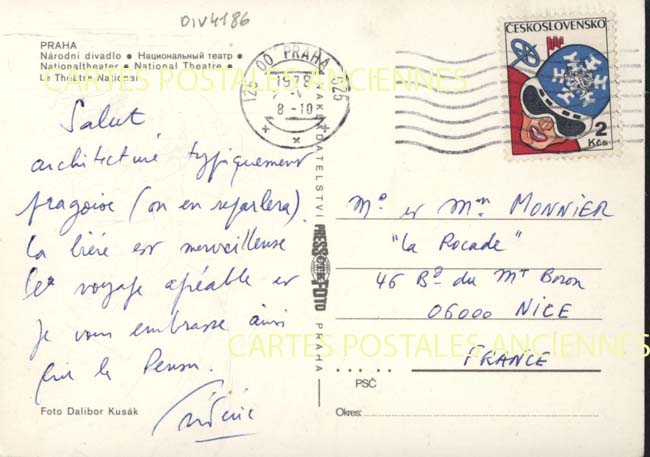 DIV4186
PRAHA
Národní divadlo ● Национальный театр ●
Nationaltheater ● National Theatre ●
Le Théâtre National
125 00 PRAHA 025
1978
8-10
ČESKOSLOVENSKO
2
Kčs
CARTES POSTALES ANCIENNES
Salut
architecture typiquement
pragoise (on en reparlera)
la bière est merveilleuse
le voyage agréable et
je vous embrasse ainsi
que le
VYDAVATELSTVÍ PRESSFOTO PRAHA
et MONNIER
"La Rocade"
46 Bd du Mt Boron
06000 NICE
FRANCE
CARTES POSTALES ANCIENNES
PSČ
Foto Dalibor Kusák
Okres: